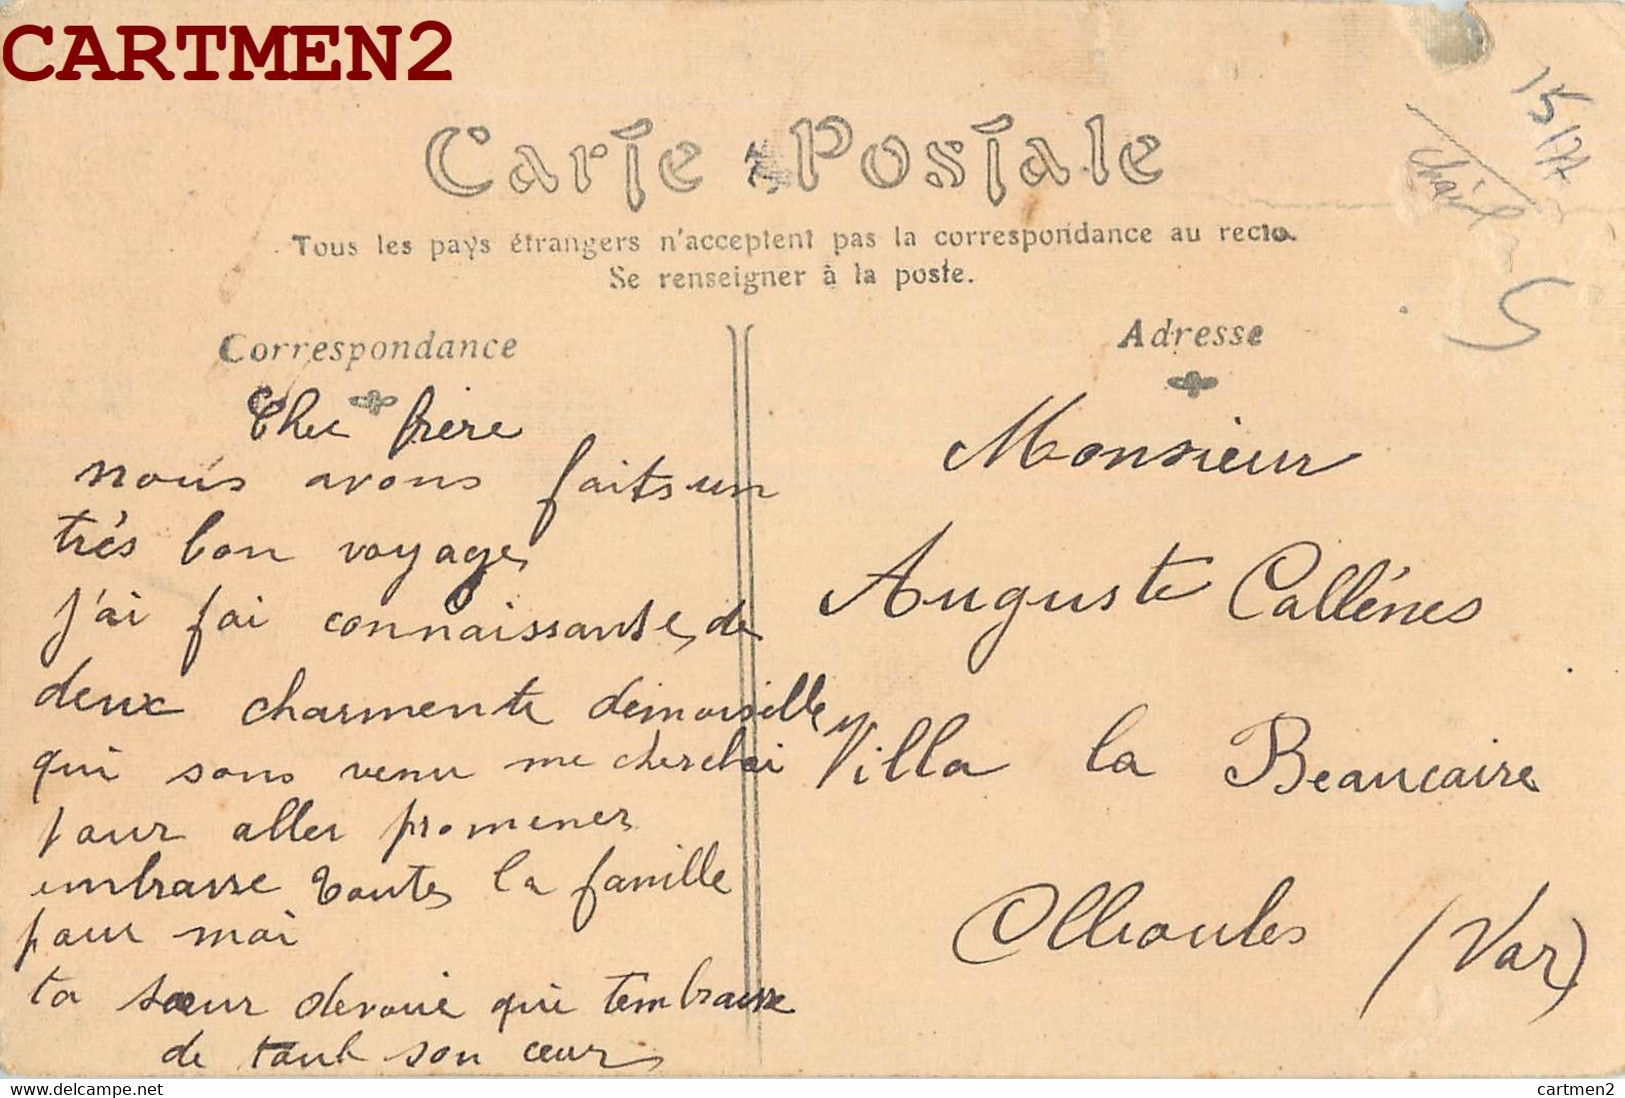 CARTMEN2
Carte Postale
Tous les pays étrangers n'acceptent pas la correspondance au recto.
Se renseigner à la poste.
Correspondance
Cher frère
nous avons faits un
très bon voyage
j'ai fai connaissante de
deux charmente demoiselle
qui sons venu me cherchai
pour aller promener
embrasse toute la famille
pour moi
ta sœur devoué qui tembrasse
de tout son cœur
Adresse
Monsieur
Auguste Callénes
Villa la Beaucaire
Ollioules (Var)
15
5
https://www.delcampe.net
cartmen2